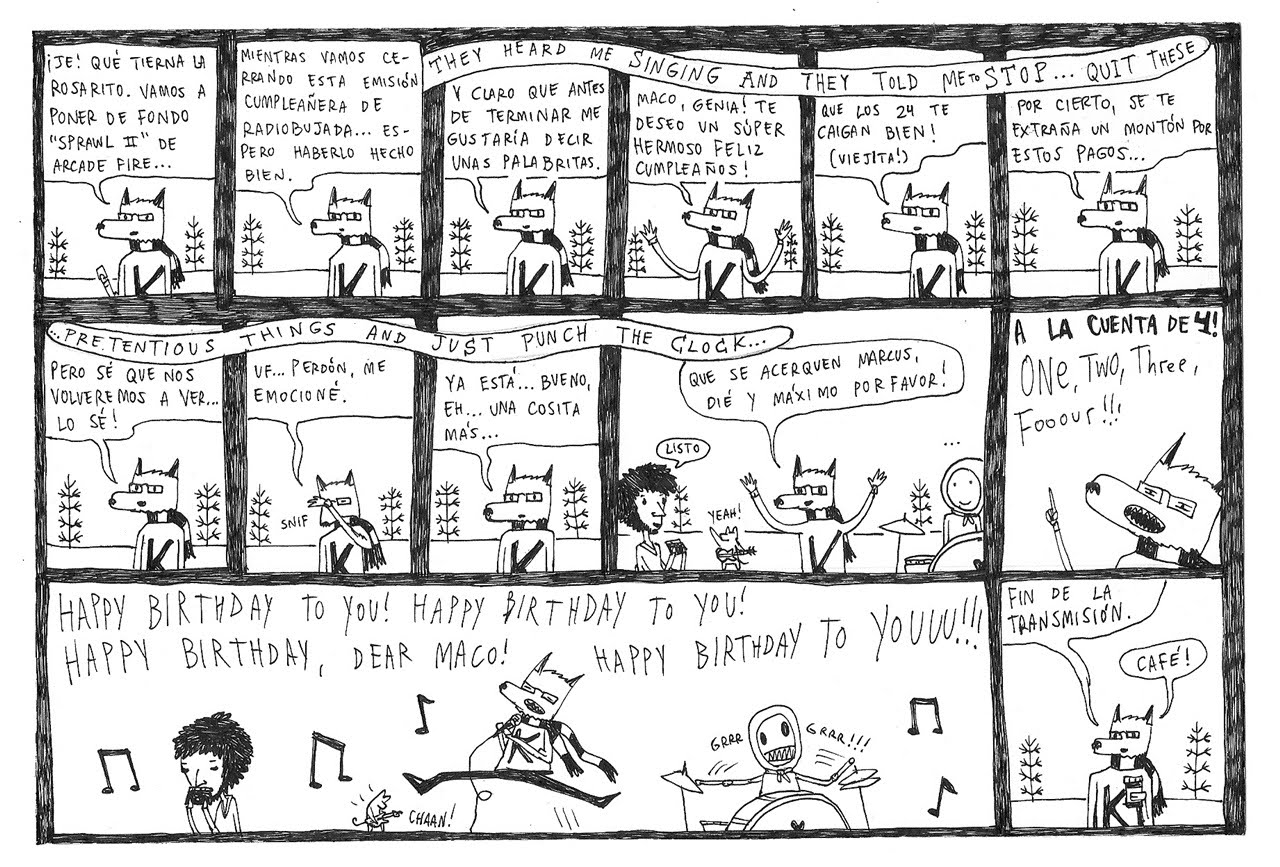 ¡JE! QUÉ TIERNA LA
ROSARITO. VAMOS A
PONER DE FONDO
"SPRAWL II" DE
ARCADE FIRE...
MIENTRAS VAMOS CE-
RRANDO ESTA EMISIÓN
CUMPLEAÑERA DE
RADIOBUJADA... ES-
PERO HABERLO HECHO
BIEN.
THEY HEARD ME SINGING AND THEY TOLD ME TO STOP... QUIT THESE
Y CLARO QUE ANTES
DE TERMINAR ME
GUSTARÍA DECIR
UNAS PALABRITAS.
MACO, GENIA! TE
DESEO UN SÚPER
HERMOSO FELIZ
CUMPLEAÑOS!
QUE LOS 24 TE
CAIGAN BIEN!
(VIEJITA!)
POR CIERTO, SE TE
EXTRAÑA UN MONTÓN POR
ESTOS PAGOS...
...PRETENTIOUS THINGS AND JUST PUNCH THE CLOCK...
PERO SÉ QUE NOS
VOLVEREMOS A VER...
LO SÉ!
UF... PERDÓN, ME
EMOCIONÉ.
SNIF
K
YA ESTÁ... BUENO,
EH... UNA COSITA
MÁS...
K
QUE SE ACERQUEN MARCUS,
DIÉ Y MÁXIMO POR FAVOR!
LISTO
YEAH!
...
K
A LA CUENTA DE 4!
ONE, TWO, THREE,
FOOOUR!!!
HAPPY BIRTHDAY TO YOU! HAPPY BIRTHDAY TO YOU!
HAPPY BIRTHDAY, DEAR MACO! HAPPY BIRTHDAY TO YOUUU!!!
CHAAN!
K
GRRR
GRRR!!!
FIN DE LA
TRANSMISIÓN.
CAFÉ!
K